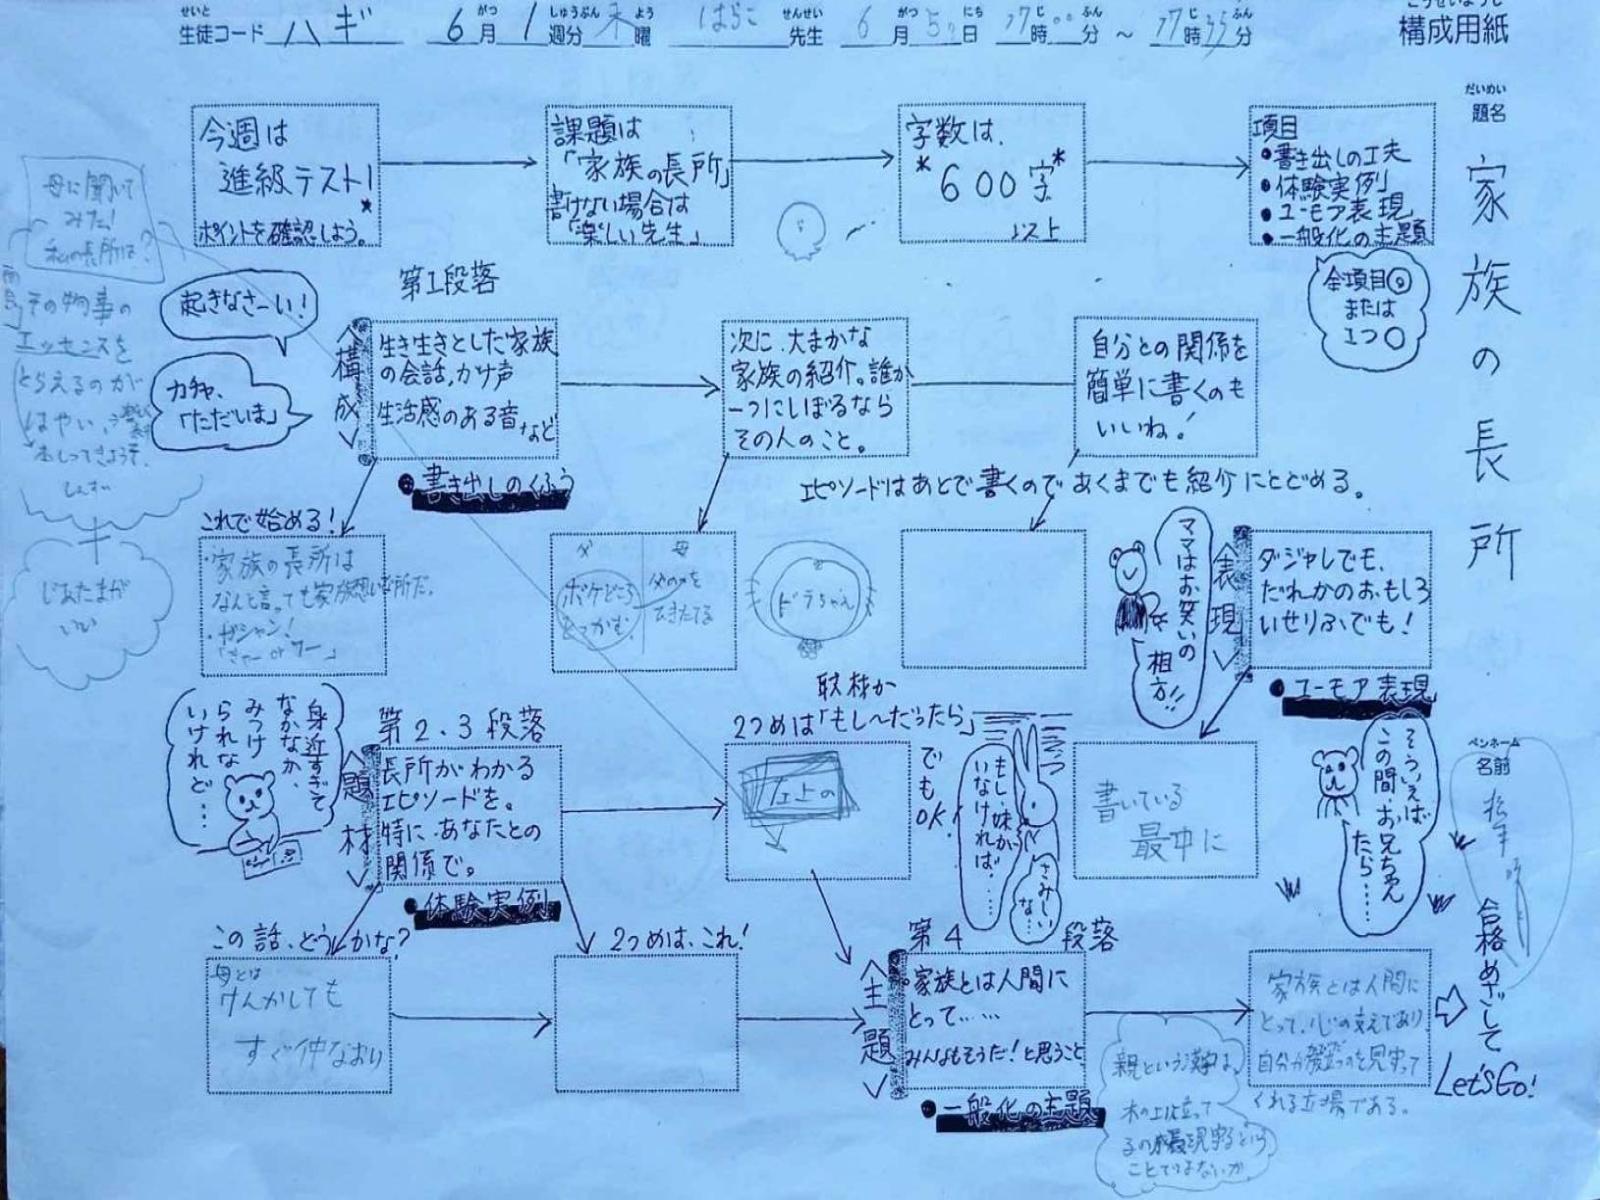 生徒コード ハギ 6月 1週分 木曜 はらこ 先生 6月5日 17時00分 ~ 17時35分
構成用紙
題名
家族の長所
今週は
進級テスト!
ポイントを確認しよう。
課題は
「家族の長所」
書けない場合は
「楽しい先生」
字数は、
*600字*
以上
項目
•書き出しの工夫
•体験実例
•ユーモア表現
•一般化の主題
全項目◎
または
1つ○
母に聞いて
みた!
私の長所は?
その物事の
エッセンスを
とらえるのが
はやい、
じあたまが
いい
起きなさーい!
カチャ、
「ただいま」
第1段落
<構成>
生き生きとした家族
の会話,かけ声
生活感のある音など
●書き出しのくふう
次に、大まかな
家族の紹介。誰か
一つにしぼるなら
その人のこと。
自分との関係を
簡単に書くのも
いいね!
エピソードはあとで書くのであくまでも紹介にとどめる。
これで始める!
・家族の長所は
なんと言っても家族想いな所だ。
・ガシャン!
父
ボケどころ
とっかむ。
母
ドラちゃん
ママはお笑いの
相方!!
<表現>
ダジャレでも、
だれかのおもしろ
いせりふでも!
●ユーモア表現
身近すぎて
なかなか、
みつけ
られな
いけれど…
第2.3段落
<題材>
長所がわかる
エピソードを。
特に、あなたとの
関係で。
●体験実例
取材か
2つめは「もし〜だったら」
でもOK!
もし、妹が
いなければ……
さみしい
な…
書いている
最中に
そういえば
この間、お兄ちゃん
たら……
ペンネーム
名前
合格めざして
Let'sGo!
この話、どうかな?
母とは
けんかしても
すぐ仲なおり
2つめは、これ!
第4段落
<主題>
家族とは人間に
とって……
みんなもそうだ!と思うこと
●一般化の主題
家族とは人間に
とって、心の支えであり
自分が巣立つのを見守って
くれる立場である。
親という漢字は、
木の上に立って
ことではないか